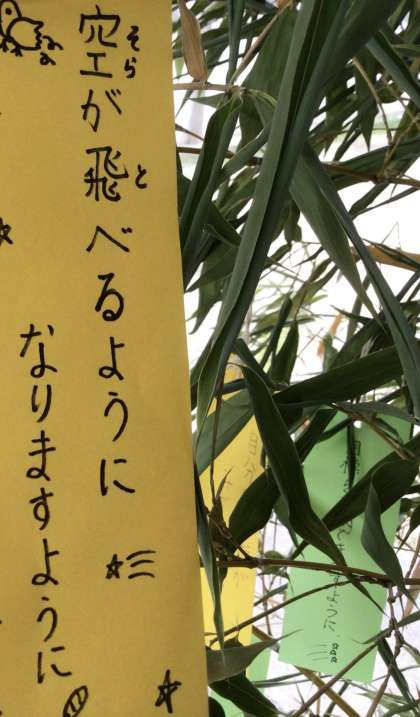 空が飛べるように
そら
と
なりますように